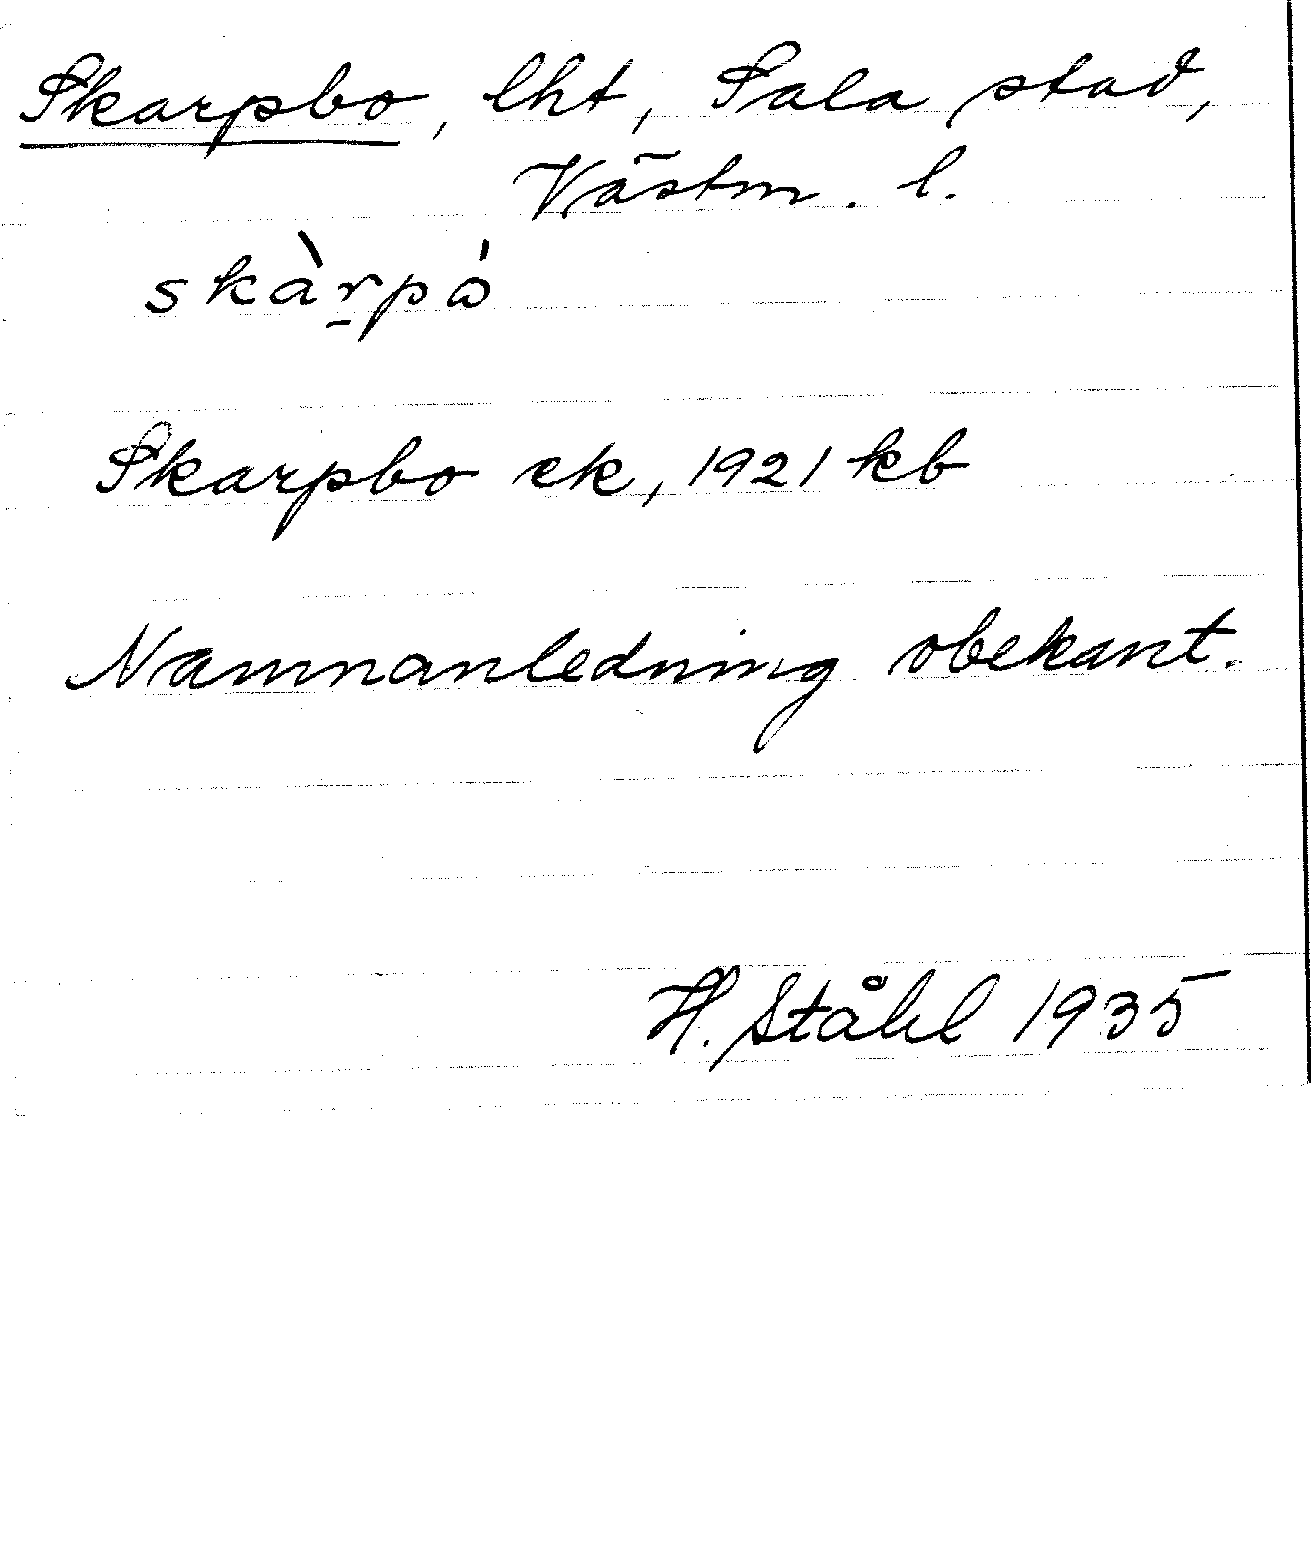 Skarpbo, lht, Sala stad,
Västm. l.
skàr̠pȯ́
Skarpbo ek, 1921 kb
Namnanledning obekant.
H. Ståhl 1935